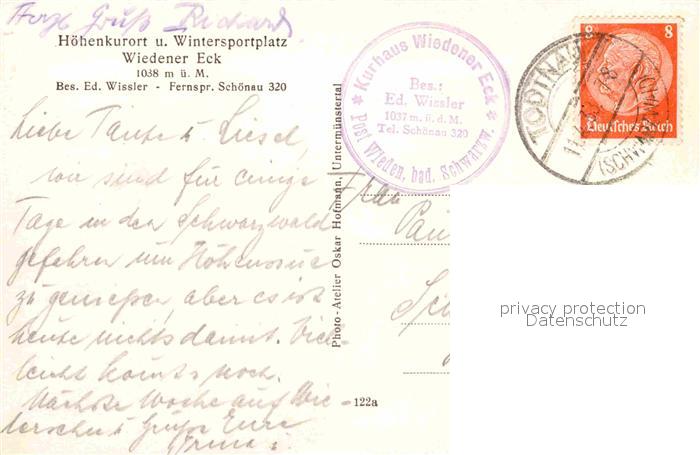 Herzl Gruß Richard
Höhenkurort u. Wintersportplatz
Wiedener Eck
1038 m ü. M.
Bes. Ed. Wissler - Fernspr. Schönau 320
Liebe Tante u Liesel,
wir sind für einige
Tage in den Schwarzwald
gefahren um Höhensonne
zu genießen, aber es ist
heute nichts damit. Viel-
leicht kommts noch.
Nächste Woche auf Wie
dersehen u Grüße Eure
Irma
Photo-Atelier Oskar Hofmann, Untermünstertal
-122a
Kurhaus Wiedener Eck
Bes.:
Ed. Wissler
1037 m. ü. d. M.
Tel. Schönau 320
Post Wieden, bad. Schwarzw.
Frau
8 8
Deutsches Reich
TODTNAU
(SCHWARZW
privacy protection
Datenschutz